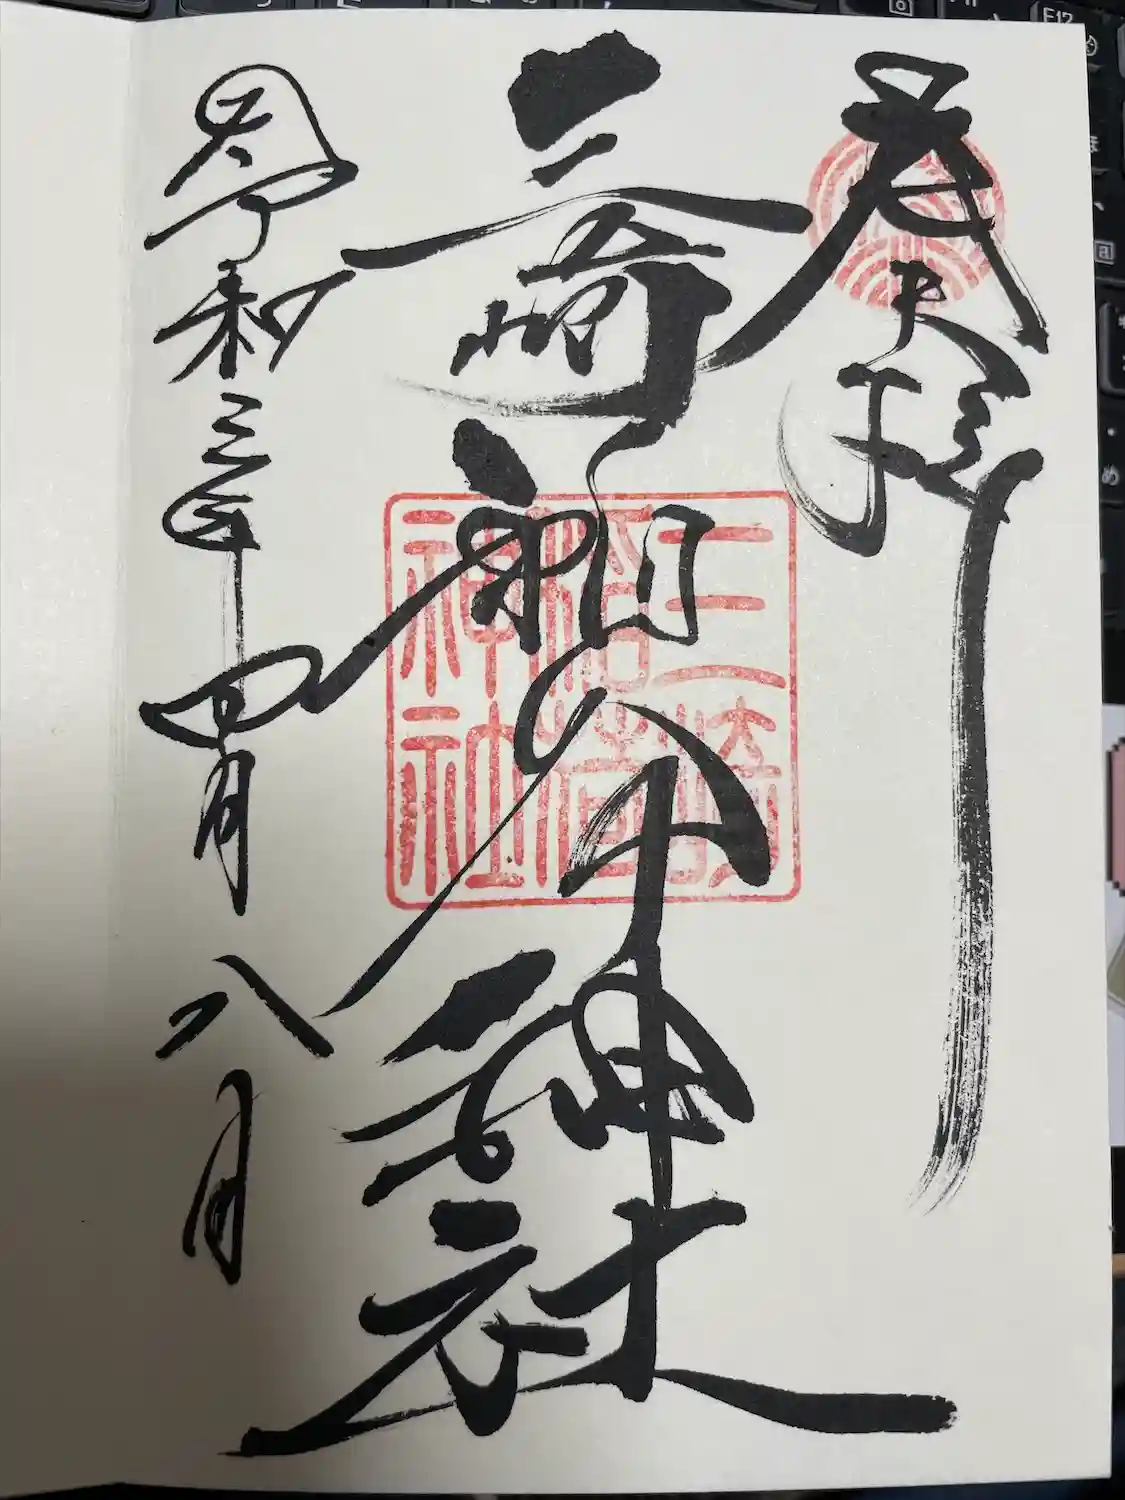 奉拝
三崎稲荷神社
令和三年四月八日
三崎
稲荷
神社
F12
め